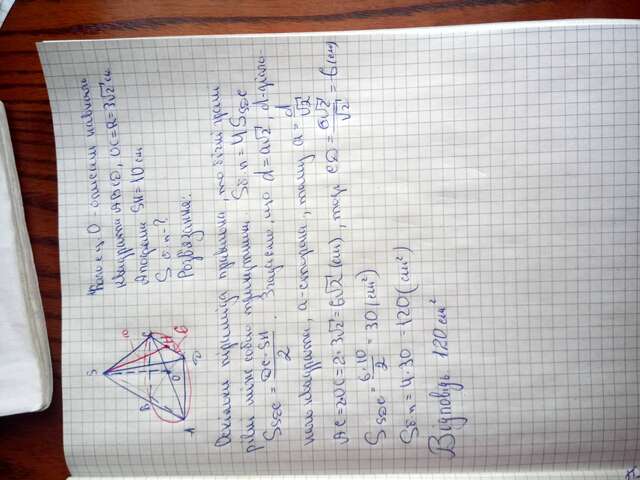 Коло з ц. O - описане навколо
квадрата ABCD, OC=R=3√2 см.
Апофема SH=10 см
S б. п-?
Розв'язання:
S
10
B
C
H
O
6
A
D
Оскільки піраміда правильна, то бічні грані
рівні між собою трикутники. Sб.п=4S SDC
S SDC = DC·SH/2. Знаємо, що d=a√2, d-діаго-
наль квадрата, a-сторона, тому a=d/√2
AC=2OC=2·3√2=6√2(см), тоді CD=6√2/√2=6(см)
S SDC=6·10/2=30(см²)
Sб.п=4·30=120(см²)
Відповідь: 120 см²